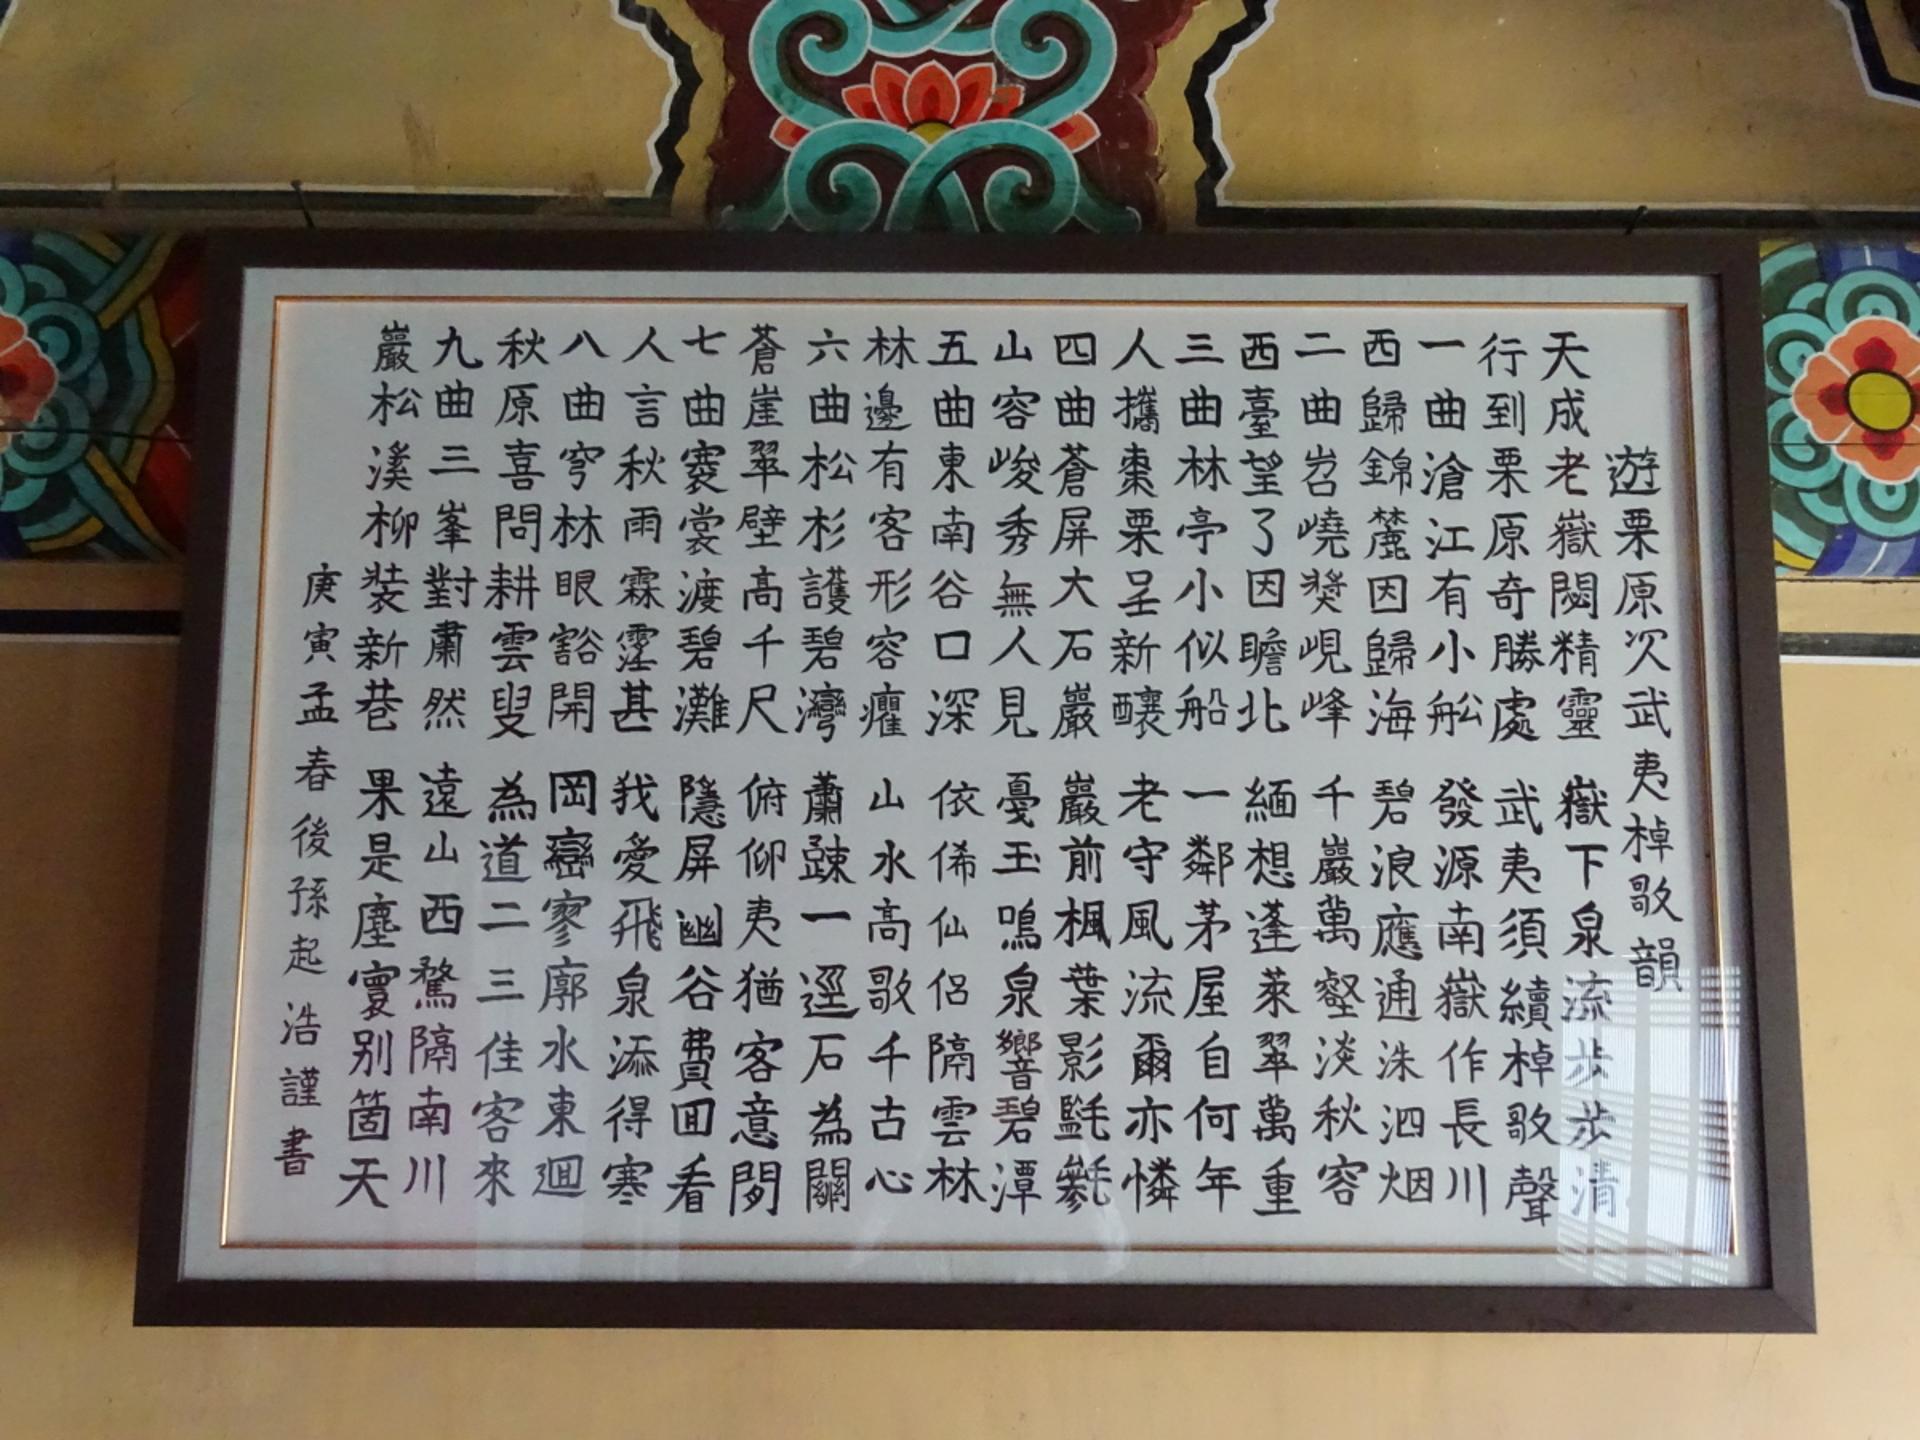 遊栗原次武夷棹歌韻
天成老嶽閟精靈 嶽下泉流步步清
行到栗原奇勝處 武夷須續棹歌聲
一曲滄江有小舩 發源南嶽作長川
西歸錦麓因歸海 碧浪應通洙泗烟
二曲岧嶢奬峴峰 千巖萬壑淡秋容
西臺望了因瞻北 緬想蓬萊翠萬重
三曲林亭小似船 一鄰茅屋自何年
人攜棗栗呈新釀 老守風流爾亦憐
四曲蒼屏大石巖 巖前楓葉影㲯毿
山容峻秀無人見 憂玉鳴泉響碧潭
五曲東南谷口深 依俙仙侶隔雲林
林邊有客形容癯 山水高歌千古心
六曲松杉護碧灣 蕭踈一逕石為關
蒼崖翠壁高千尺 俯仰夷猶客意閒
七曲褰裳渡碧灘 隱屏幽谷費回看
人言秋雨霖霪甚 我愛飛泉添得寒
八曲穹林眼豁開 岡巒寥廓水東迴
秋原喜問耕雲叟 為道二三佳客來
九曲三峯對肅然 遠山西騖隔南川
巖松溪柳裝新巷 果是塵寰別箇天
庚寅孟春後孫起浩謹書